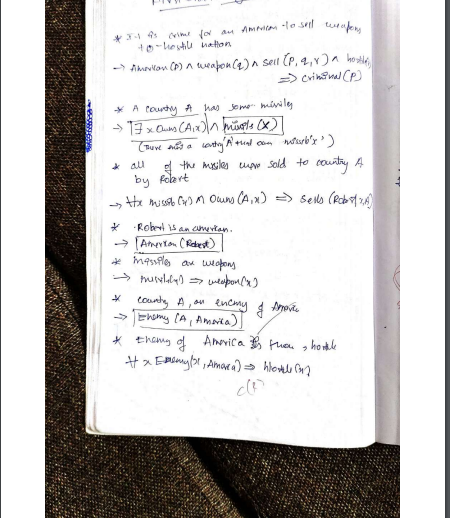 * It is crime for an American to sell weapons
to hostile nation
→ American(P) ∧ weapon(q) ∧ sell(P, q, r) ∧ hostile
⟹ criminal(P)
* A country A has some missiles
→ ∃x Owns(A,x) ∧ missile(x)
(There a country 'A' that own missile 'x')
* all of the missiles were sold to country A
by Robert
→ ∀x missile(x) ∧ Owns(A, x) ⟹ Sells(Robert, x, A)
* Robert is an american.
→ American(Robert)
* missiles are weapons
→ missile(x) ⟹ weapon(x)
* country A, an enemy of America
→ Enemy(A, America)
* Enemy of America is , hostile
∀x Enemy(x, America) ⟹ Hostile(x)